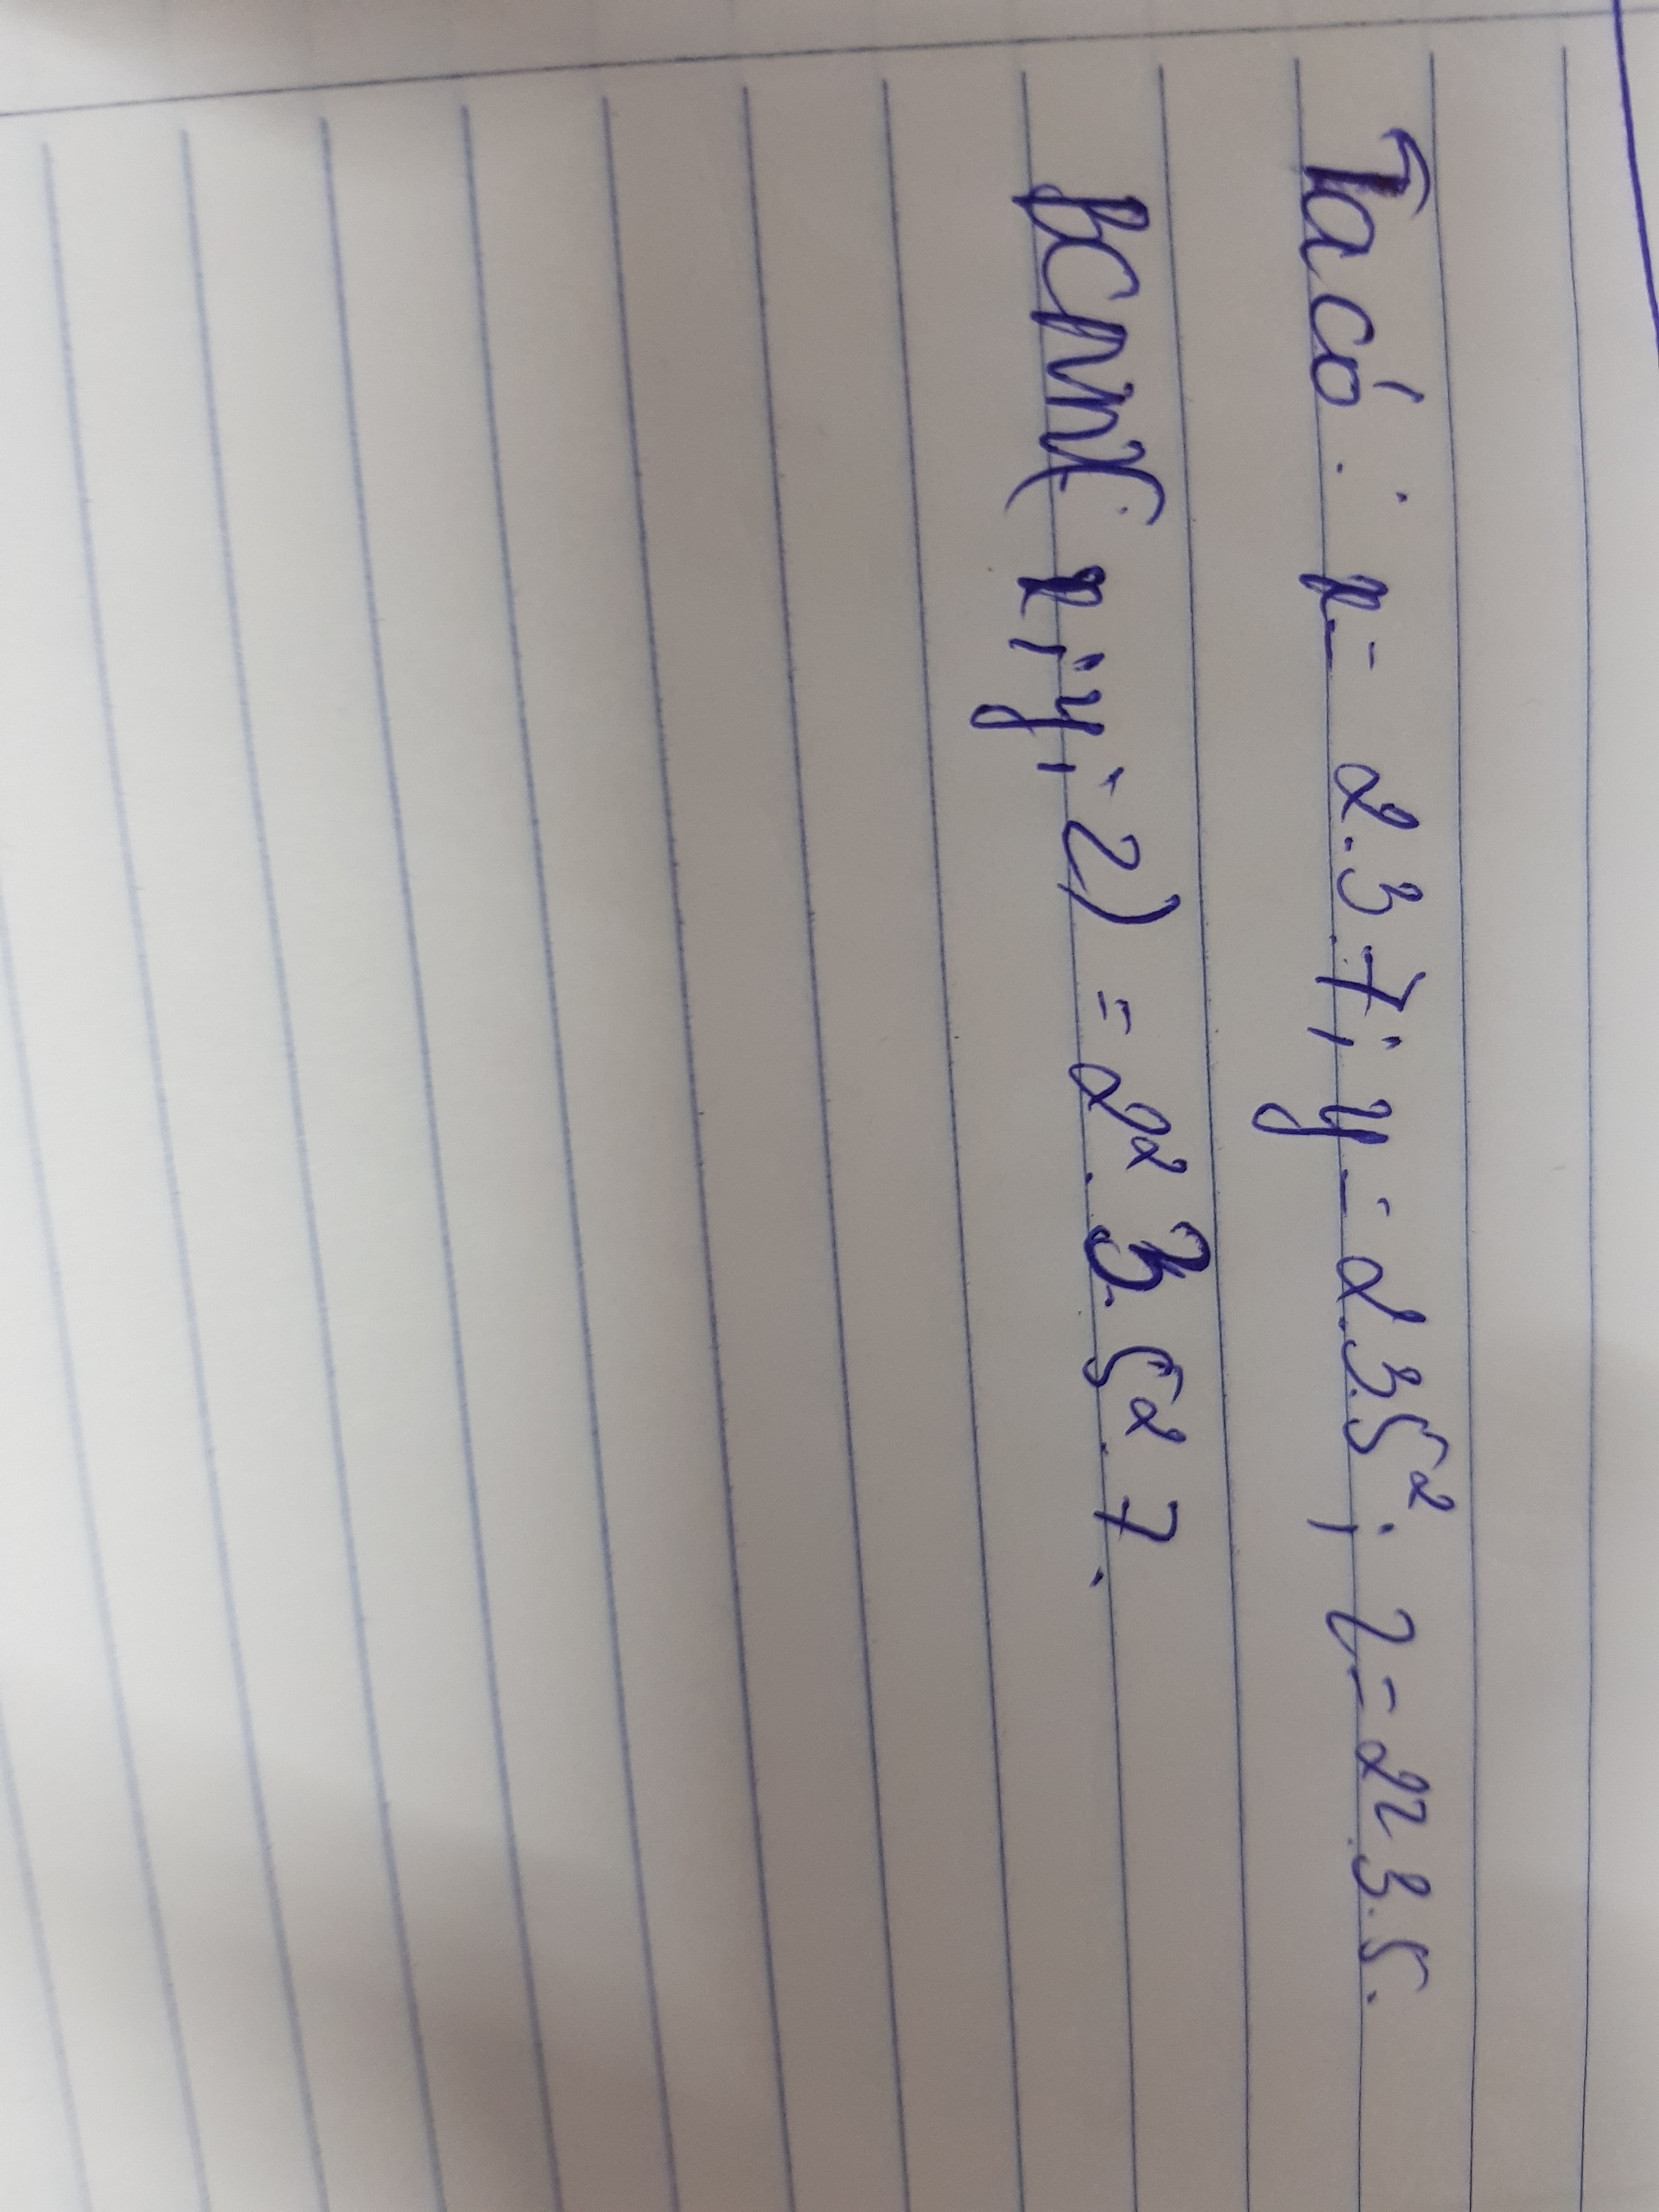 Ta có: x = 2.3.7; y = 2.3.5²; z = 2².3.5.
BCNN(x;y;z) = 2².3.5².7.